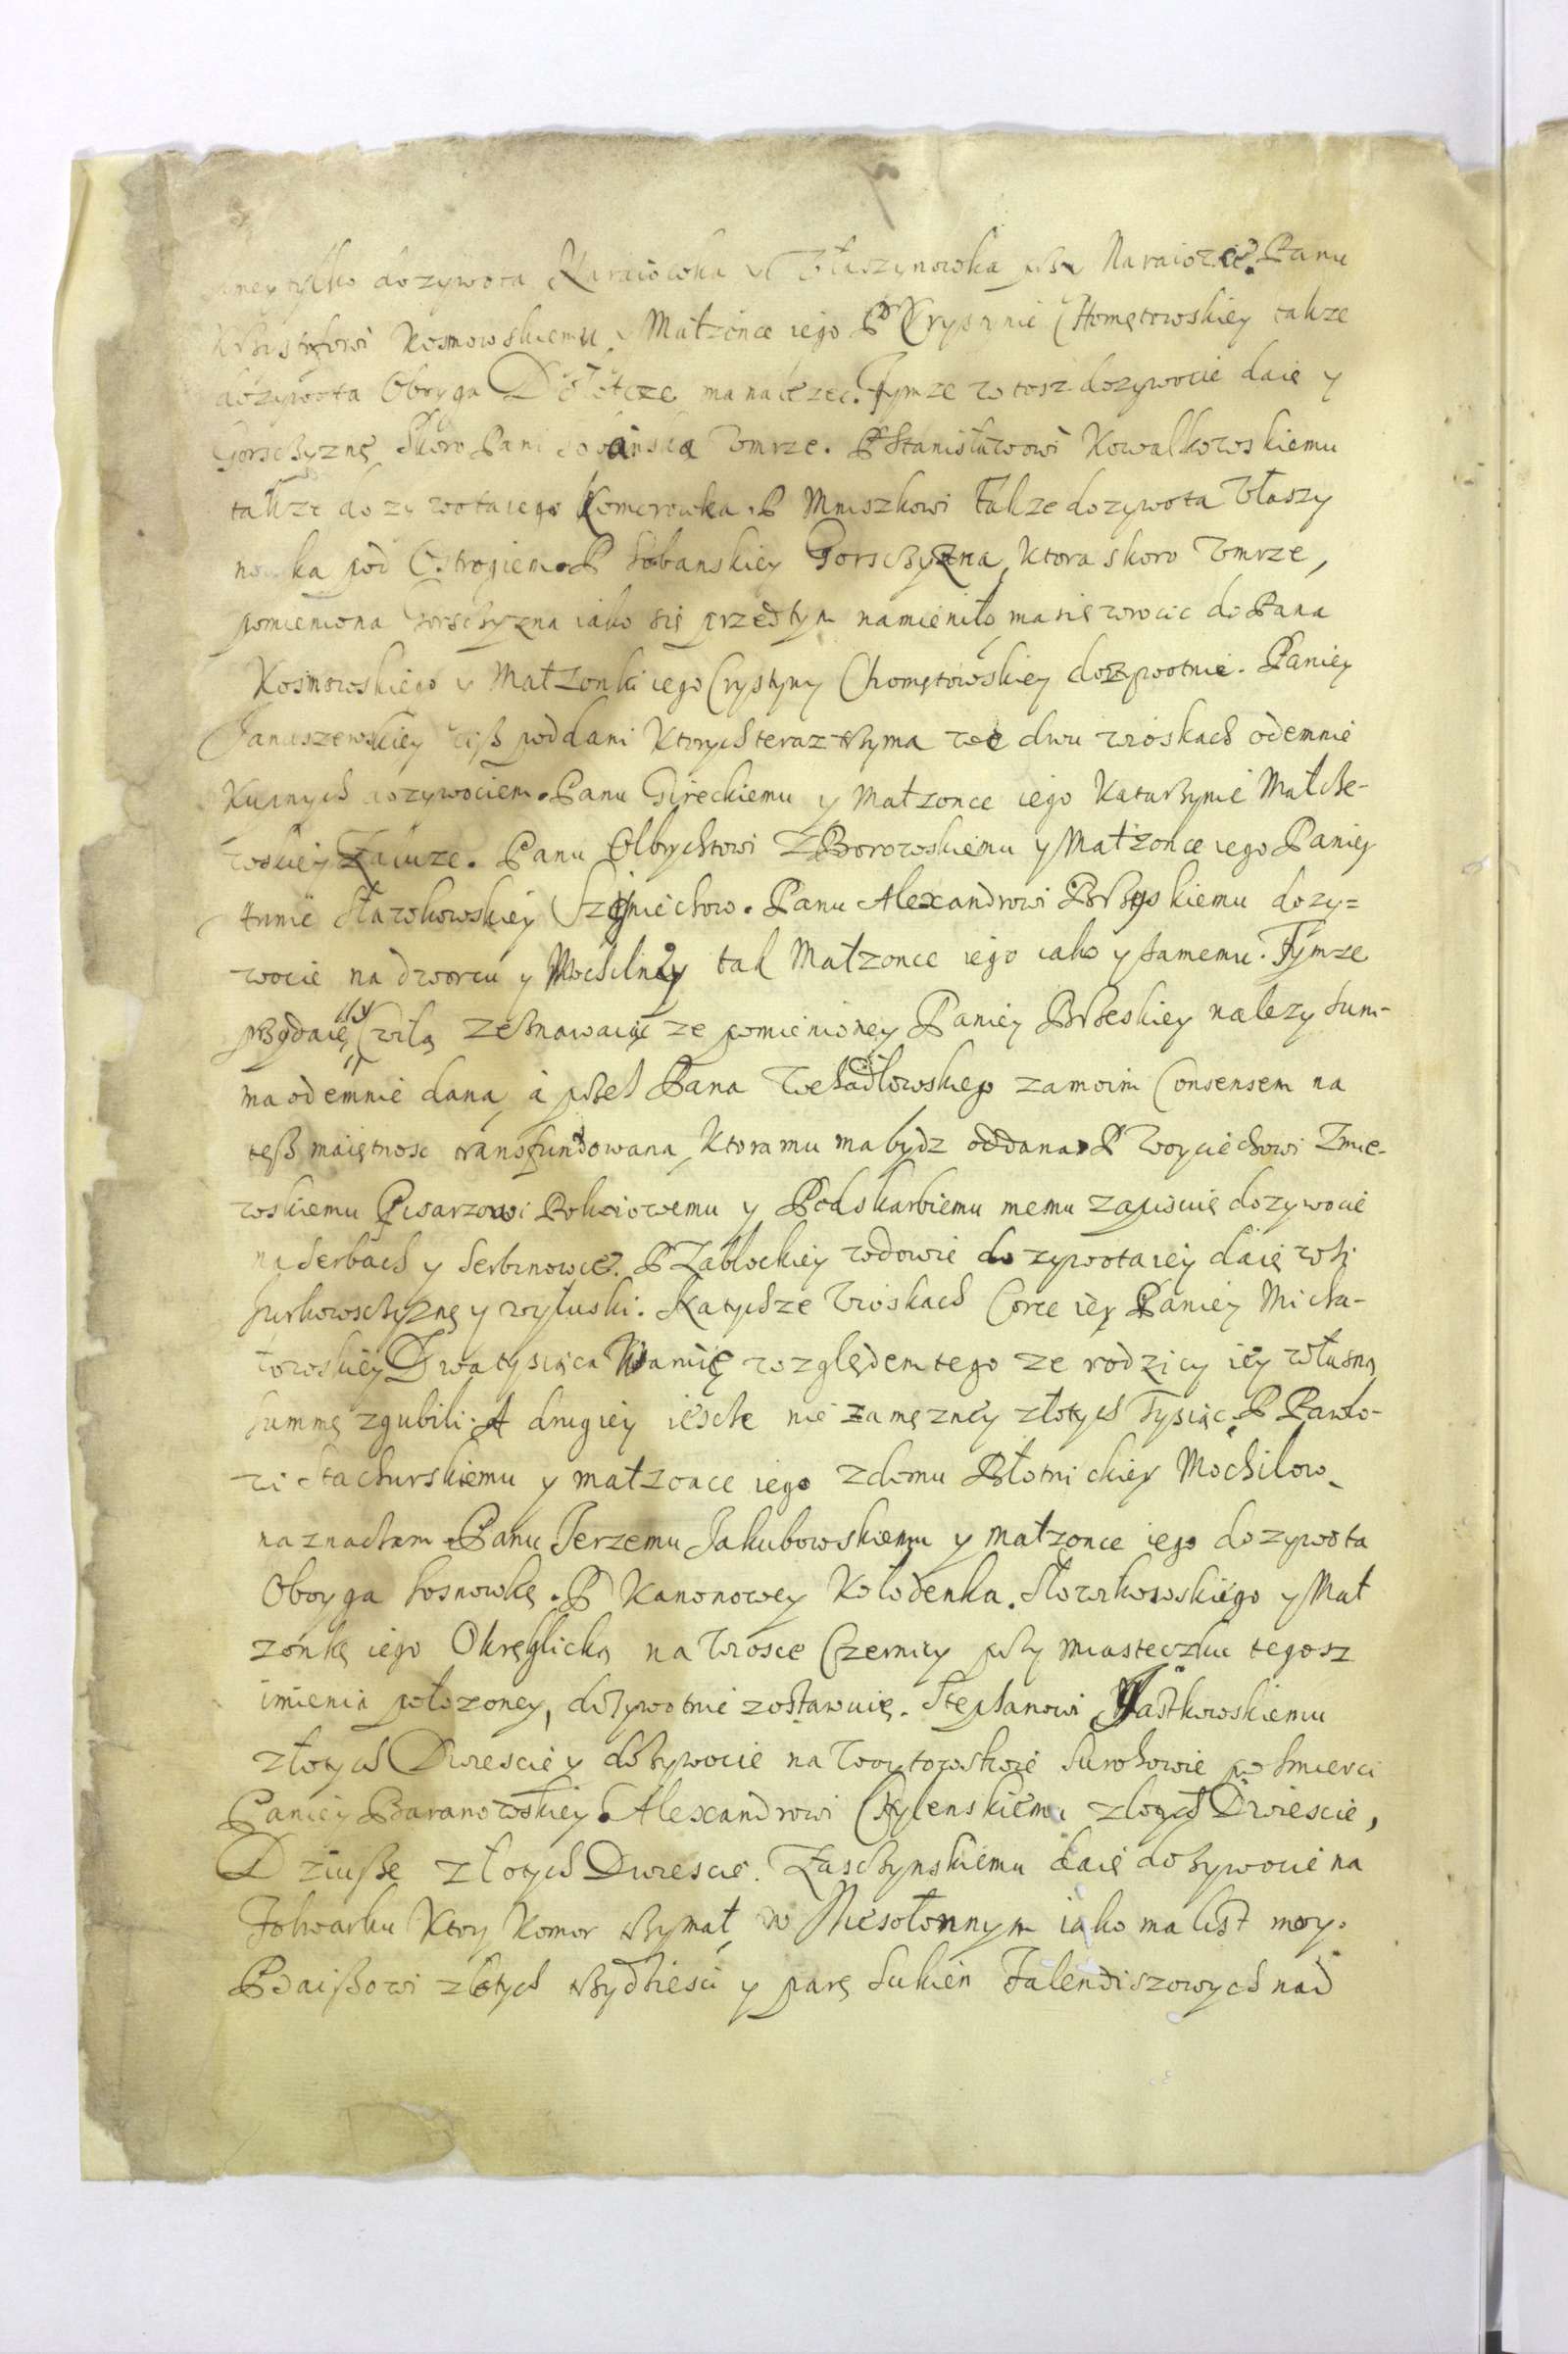 tylko dozywota Naraiowka y Właszynowka przy Naraiowie. Panu
Krzisztofowi Kosmowskiemu y Małzonce iego P Crystynie Chomętowskiey takze
dozywota Obryga ma nalezec. Tymze w tosz dozywocie daię y
Gorsczyznę Skoro Pani Sobanska Vmrze. P Stanisławowi Kowalkowskiemu
takze dozywota iego Komorowka. P Mniszkowi Takze dozywota Właszy
nowka pod Ostrogiem. P Sobanskiey Gorsczyzna, Ktora skoro Vmrze,
pomieniona Gorsczyzna iako się przedtym namieniło ma się wrocic do Pana
Kosmowskiego y Małzonki iego Crystyny Chomętowskiey dozywotnie. Paniey
Januszewskiey cisz poddani Ktorych teraz trzyma we dwu wioskach odemnie
Kupnych dozywociem. Panu Gireckiemu y Małzonce iego Katarzynie Małche-
wskiey Zawze. Panu Olbrychtowi Zborowskiemu y Małzonce iego Paniey
Annie Sławkowskiey Szczniechow. Panu Alexandrowi Brzeskiemu dozy=
wocie na dworcu y Mochilney tak Małzonce iego iako y samemu. Tymze
przydaię Wilą zeznawaiąc ze pomienioney Paniey Brzeskiey nalezy sum-
ma odemnie dana, a przes Pana Wesadłowskiego za moim Consensem na
tęsz maiętnosc transfundowana, Ktora mu ma bydz oddana. P Woyciechowi Zmie-
wskiemu Pisarzowi Pokoiowemu y Podskarbiemu memu zapisuię dozywocie
na Serbach y Serbinowce. P Zabłockiey wdowie dozywota iey daię wsi
Jurkowsczyznę y wyłuski. Na tychze Wioskach Corce iey Paniey Micha-
łowskiey Dwa tysiąca względem tego ze rodzicy iey własną
summę zgubili. A drugiey iescze nie zamęzney złotych Tysiąc. P Pawło-
wi Stachurskiemu y małzonce iego z domu Błotnickiey Mochilow
naznaczam. Panu Jerzemu Jakubowskiemu y małzonce iego dozywota
Obryga Sosnowkę. P Kanonowey Kołodenka. Słowikowskiego y Mał
zonkę iego Okręglicką na Wiosce Czernicy przy miasteczku tegosz
imienia połozoney, dozywotnie zostawuię. Stephanowi Jastkowskiemu
złotych Dwiescie y dozywocie na Woytowstwie Surohowie po smierci
Paniey Baranowskiey. Alexandrowi Chylenskiemu złotych Dwiescie,
Dziusze złotych Dwiescie. Zasczynskiemu daię dozywocie na
Folwarku Ktory Komor trzymał, w Niesołonnym iako ma list moy.
złotych trzydziesci y parę Sukien Falendiszowych nad